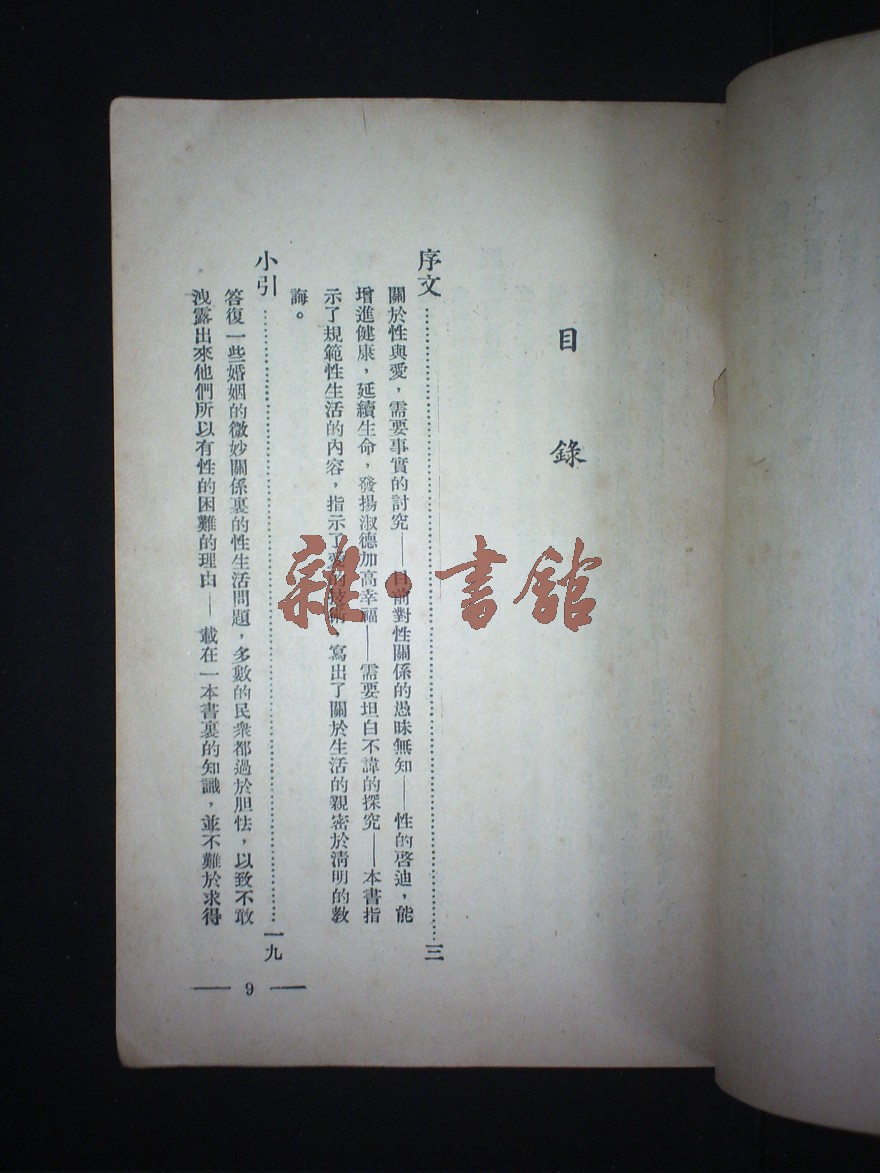 目錄
序文……三
關於性與愛，需要事實的討究——目前對性關係的愚昧無知——性的啓迪，能
增進健康，延續生命，發揚淑德加高幸福——需要坦白不諱的探究——本書指
示了規範性生活的內容，指示了愛的技術，寫出了關於生活的親密於清明的教
誨。
小引……一九
答復一些婚姻的微妙關係裏的性生活問題，多數的民衆都過於胆怯，以致不敢
洩露出來他們所以有性的困難的理由——載在一本書裏的知識，並不難於求得
— 9 —
雜·書館